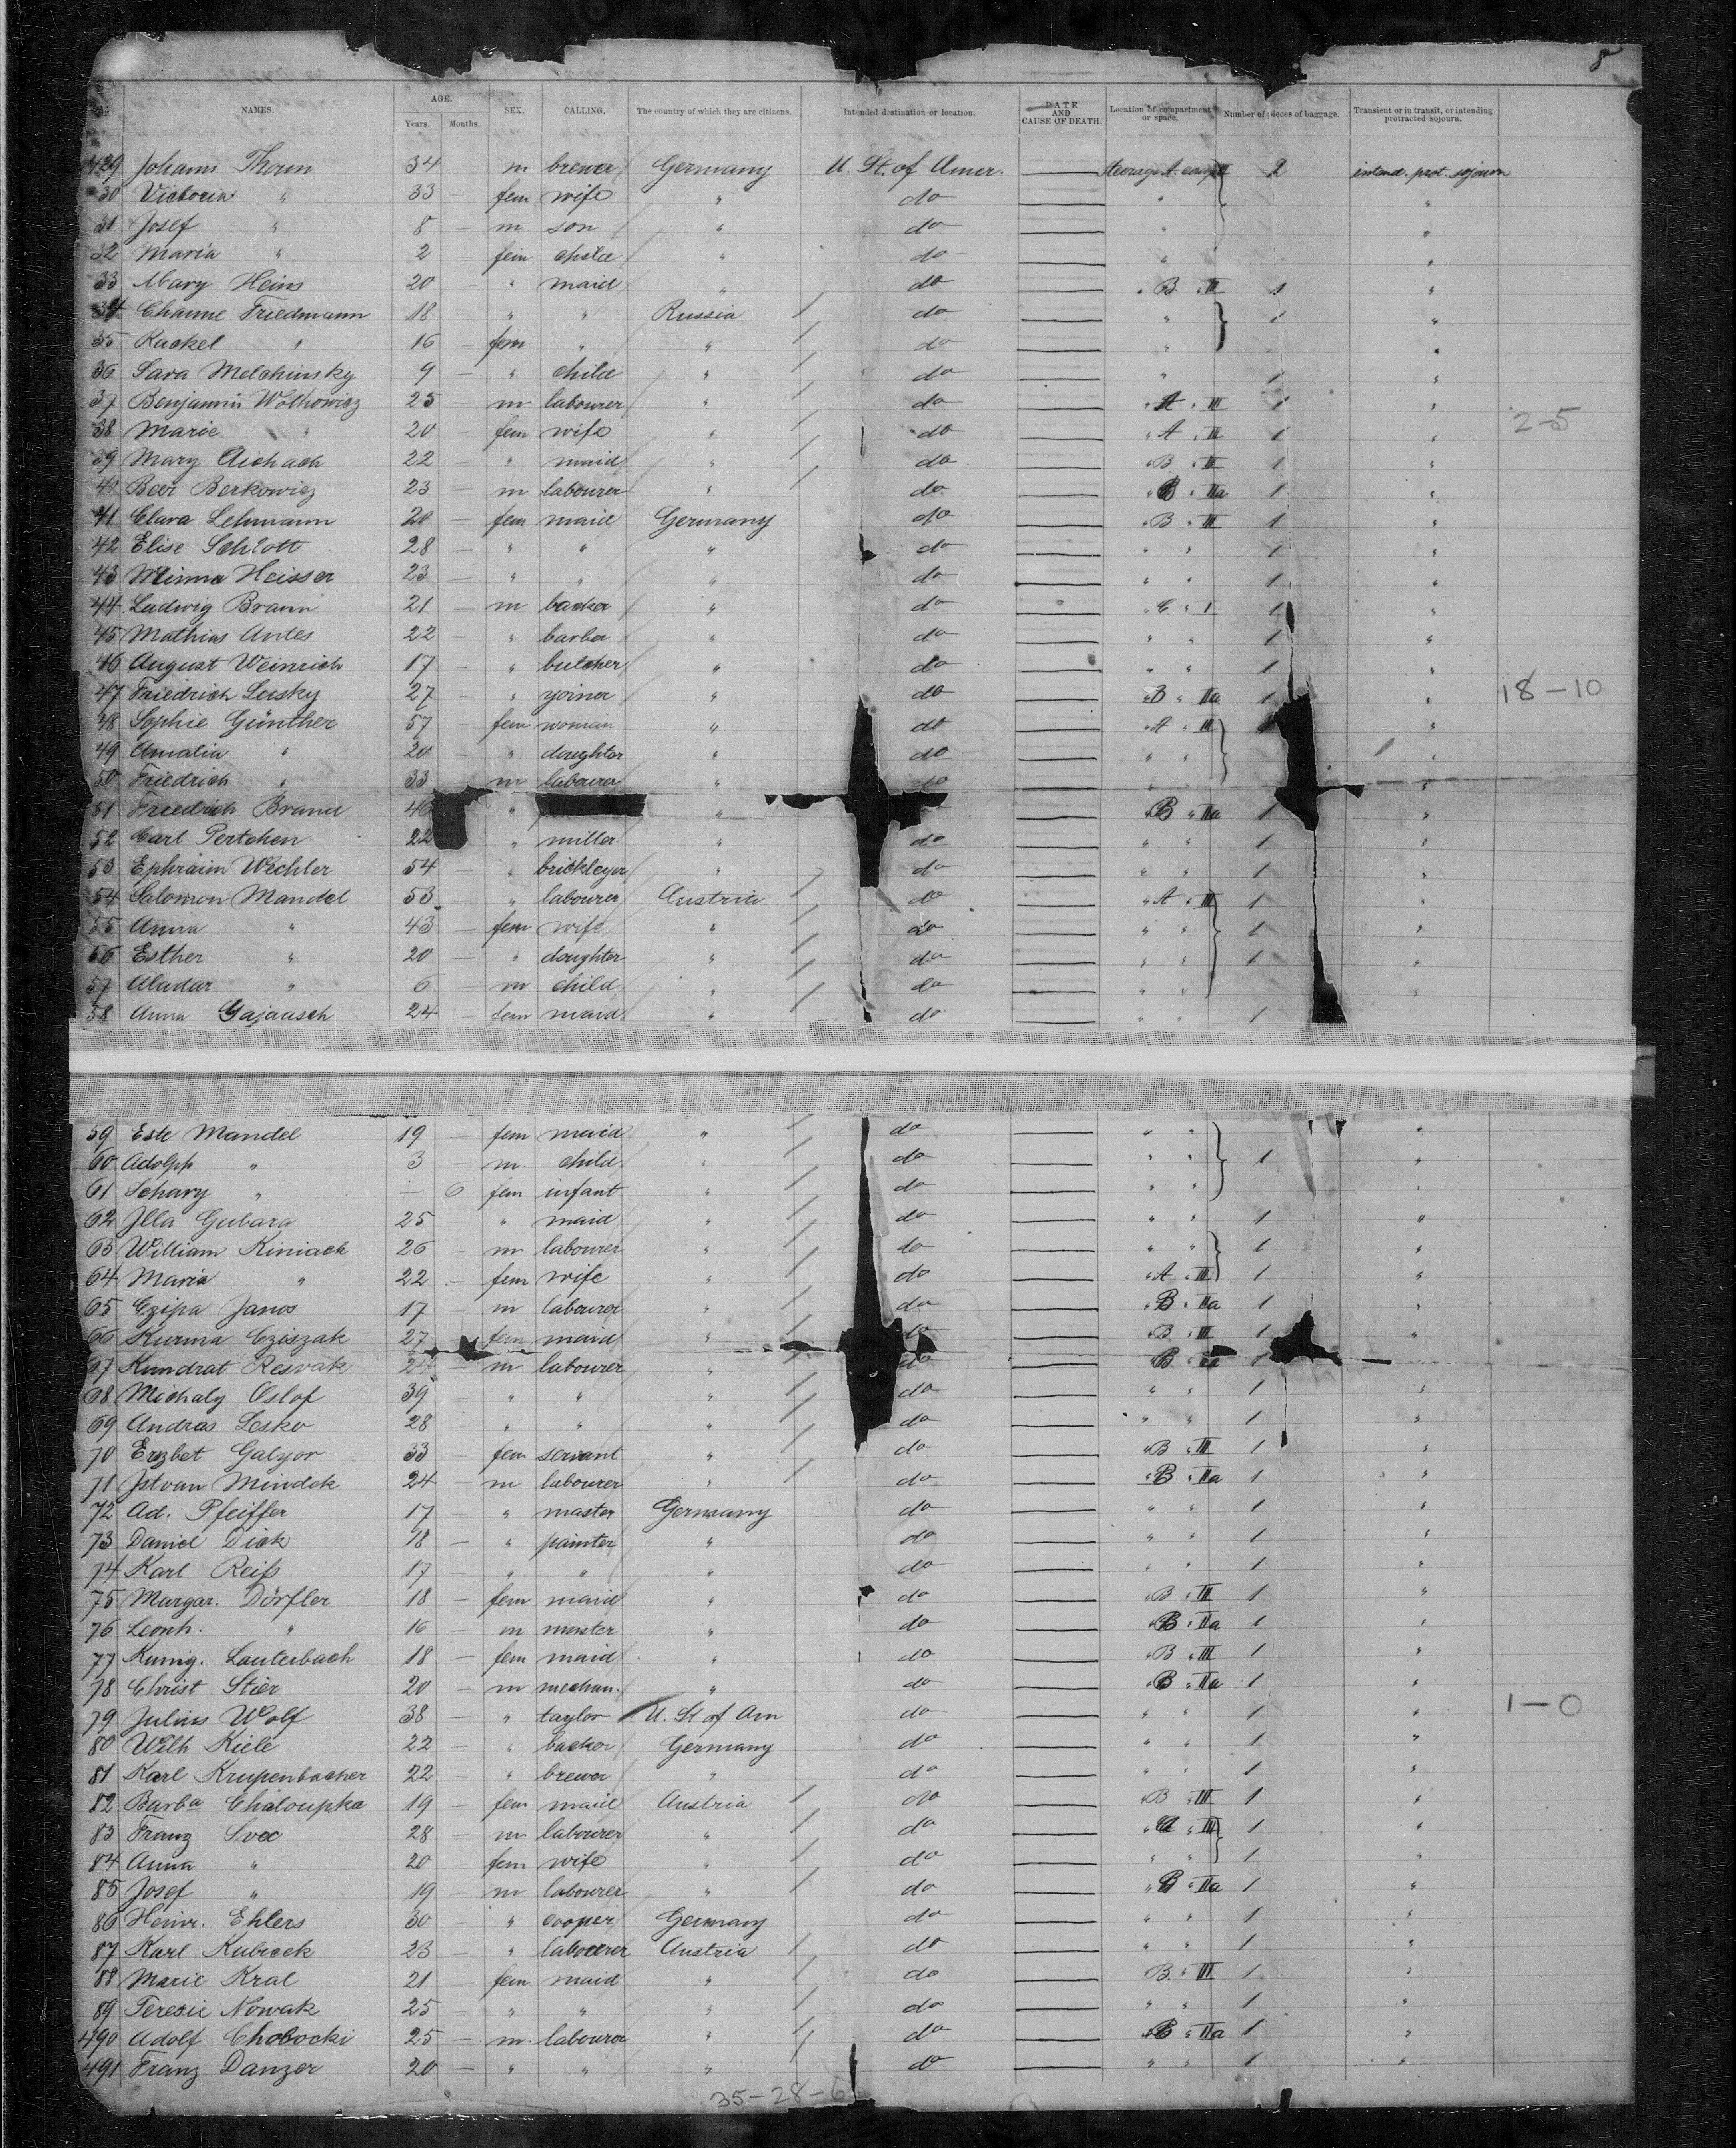 8
№ NAMES. AGE. Years. Months. SEX. CALLING. The country of which they are citizens. Intended destination or location. DATE AND CAUSE OF DEATH. Location of compartment or space. Number of pieces of baggage. Transient or in transit, or intending protracted sojourn.
429 Johann Thoun 34 m brewer Germany U. St. of Amer. Steerage A. comp II 2 intend. prot. sojourn
30 Victoria " 33 — fem wife " do " "
31 Josef " 8 — m. son " do " "
32 Maria " 2 — fem child " do " "
33 Mary Heins 20 — " maid " do " B. " III 1 "
34 Channe Friedmann 18 — " " Russia do " 1 "
35 Rachel " 16 — fem " " do " "
36 Sara Melchinsky 9 — " child " do " 1 "
37 Benjamin Wolhowicz 25 — m labourer " do " A " III 1 "
38 Marie " 20 — fem wife " do " A " III 1 " 2-5
39 Mary Aichach 22 — " maid " do " B " III 1 "
40 Beer Berkowicz 23 — m labourer " do " B " IIa 1 "
41 Clara Lehmann 20 — fem maid Germany do " B " III 1 "
42 Elise Schlott 28 — " " " do " " 1 "
43 Minna Heisser 23 — " " " do " " 1 "
44 Ludwig Braun 21 — m backer " do " C " I 1 "
45 Mathias Antes 22 — " barber " do " " 1 "
46 August Weinrich 17 — " butcher " do " " 1 "
47 Friedrich Lusky 27 — " yoiner " do " B " IIa 1 " 18-10
48 Sophie Günther 57 — fem woman " do " A " III "
49 Amalia " 20 — " doughter " do " " "
50 Friedrich " 33 m labourer " do " "
51 Friedrich Brand " " B " IIa 1 "
52 Carl Pertchen 22 " miller " do " " 1 "
53 Ephraim Wechler 54 — " brickleyer " do " " 1 "
54 Salomon Mandel 53 — " labourer Austria do " A " III 1 "
55 Anna " 43 — fem wife " do " " 1 "
56 Esther " 20 — " doughter " do " " 1 "
57 Aladar " 6 — m child " do " " "
58 Anna Gajausch 24 — fem maid " do " " 1
59 Este Mandel 19 — fem maid " do " " "
60 Adolph " 3 — m. child " do " " 1 "
61 Schary " — 6 fem infant " do " " "
62 Illa Gubara 25 — " maid " do " " 1 "
63 William Kiniack 26 — m labourer " do " " 1 "
64 Maria " 22 — fem wife " do " A " III 1 "
65 Czipa Janos 17 — m labourer " do " B " IIa 1 "
66 Kurina Cziszak 27 fem maid " do " B " III 1 "
67 Kundrat Reswak m labourer " do " B " IIa 1
68 Michaly Oslof 39 — " " " do " " 1 "
69 Andras Lesko 28 — " " " do " " 1 "
70 Erzbet Galyor 33 — fem servant " do " B " III 1 "
71 Jstvan Mindek 24 — m labourer " do " B " IIa 1 "
72 Ad. Pfeiffer 17 — " master Germany do " " 1 "
73 Daniel Dick 18 — " painter " do " " 1 "
74 Karl Reiß 17 — " " " do " " 1 "
75 Margar. Dörfler 18 — fem maid " do " B " III 1 "
76 Leonh. " 16 — m master " do " B " IIa 1 "
77 Kunig. Lauterbach 18 — fem maid " do " B " III 1 "
78 Christ Stier 20 — m mechan. " do " B " IIa 1 "
79 Julius Wolf 38 — " taylor U. St of Am do " " 1 " 1-0
80 Wilh Kiele 22 — " backer Germany do " " 1 "
81 Karl Krupenbacher 22 — " brewer " do " " 1 "
82 Barba Chaloupka 19 — fem maid Austria do " B " III 1 "
83 Franz Svec 28 — m labourer " do " A " III 1 "
84 Anna " 20 — fem wife " do " " 1 "
85 Josef " 19 — m labourer " do " B " IIa 1 "
86 Heinr. Ehlers 30 — " cooper Germany do " " 1 "
87 Karl Kubicek 23 — " labourer Austria do " " 1 "
88 Marie Kral 21 — fem maid " do B. " III 1 "
89 Teresie Nowak 25 — " " " do " " 1 "
490 Adolf Chobocki 25 — m. labourer " do " B " IIa 1 "
491 Franz Danzer 20 — " " " do " " 1 "
35-28-6